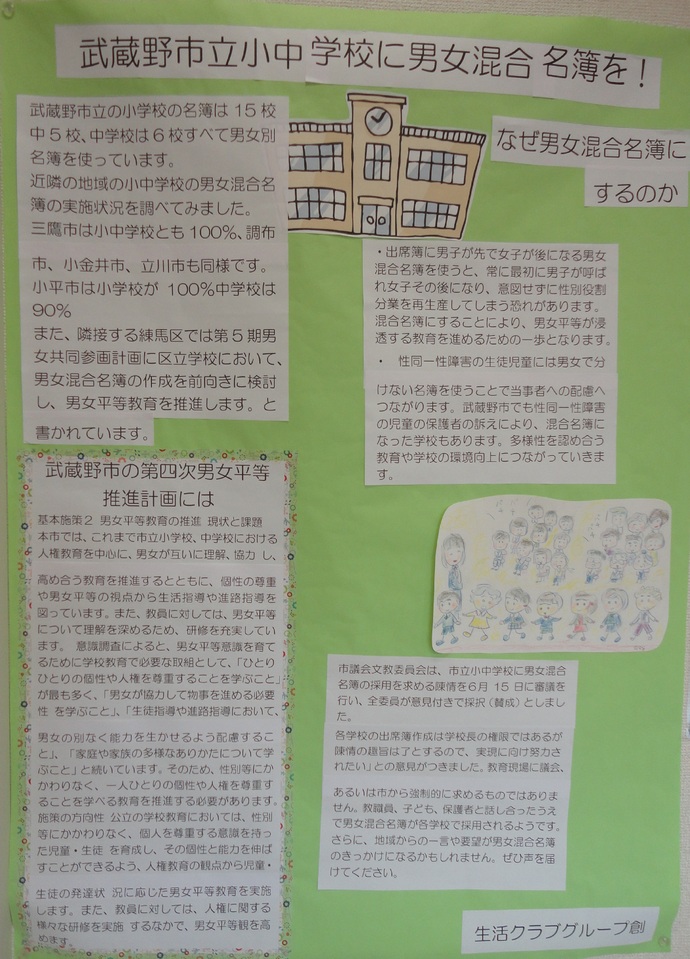 武蔵野市立小中学校に男女混合名簿を！
武蔵野市立の小学校の名簿は15校
中5校、中学校は6校すべて男女別
名簿を使っています。
近隣の地域の小中学校の男女混合名
簿の実施状況を調べてみました。
三鷹市は小中学校とも100%、調布
市、小金井市、立川市も同様です。
小平市は小学校が 100%中学校は
90%
また、隣接する練馬区では第5期男
女共同参画計画に区立学校において、
男女混合名簿の作成を前向きに検討
し、男女平等教育を推進します。と
書かれています。
武蔵野市の第四次男女平等
推進計画には
基本施策2 男女平等教育の推進 現状と課題
本市では、これまで市立小学校、中学校における
人権教育を中心に、男女が互いに理解、協力 し、
高め合う教育を推進するとともに、個性の尊重
や男女平等の視点から生活指導や進路指導を
図っています。また、教員に対しては、男女平等
について理解を深めるため、研修を充実してい
ます。 意識調査によると、男女平等意識を育て
るために学校教育で必要な取組として、「ひとり
ひとりの個性や人権を尊重することを学ぶこと」
が最も多く、「男女が協力して物事を進める必要
性 を学ぶこと」、「生徒指導や進路指導において、
男女の別なく能力を生かせるよう配慮するこ
と」、「家庭や家族の多様なありかたについて学
ぶこと」と続いています。そのため、性別等にか
かわりなく、一人ひとりの個性や人権を尊重す
ることを学べる教育を推進する必要があります。
施策の方向性 公立の学校教育においては、性別
等にかかわりなく、個人を尊重する意識を持っ
た児童・生徒 を育成し、その個性と能力を伸ば
すことができるよう、人権教育の観点から児童・
生徒の発達状 況に応じた男女平等教育を実施
します。また、教員に対しては、人権に関する
様々な研修を実施 するなかで、男女平等観を高
めます。
なぜ男女混合名簿に
するのか
・出席簿に男子が先で女子が後になる男女
混合名簿を使うと、常に最初に男子が呼ば
れ女子その後になり、意図せずに性別役割
分業を再生産してしまう恐れがあります。
混合名簿にすることにより、男女平等が浸
透する教育を進めるための一歩となります。
・ 性同一性障害の生徒児童には男女で分
けない名簿を使うことで当事者への配慮へ
つながります。武蔵野市でも性同一性障害
の児童の保護者の訴えにより、混合名簿に
なった学校もあります。多様性を認め合う
教育や学校の環境向上につながっていきま
す。
市議会文教委員会は、市立小中学校に男女混合
名簿の採用を求める陳情を6月 15 日に審議を
行い、全委員が意見付きで採択（賛成）としまし
た。
各学校の出席簿作成は学校長の権限ではあるが
陳情の趣旨は了とするので、実現に向け努力さ
れたい」との意見がつきました。教育現場に議会、
あるいは市から強制的に求めるものではありま
せん。教職員、子ども、保護者と話し合ったうえ
で男女混合名簿が各学校で採用されるようです。
さらに、地域からの一言や要望が男女混合名簿
のきっかけになるかもしれません。ぜひ声を届
けてください。
生活クラブグループ創